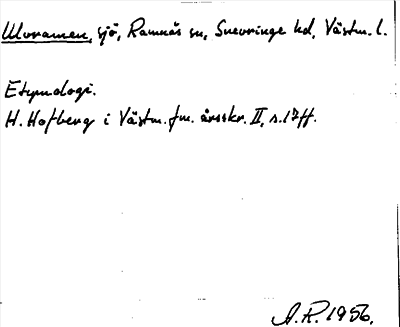 Ulvramen, sjö, Ramnäs sn, Snevringe hd, Västm. l.
Etymologi.
H. Hofberg i Västm. fm. årsskr. II, s. 17 ff.
A.R. 1956.